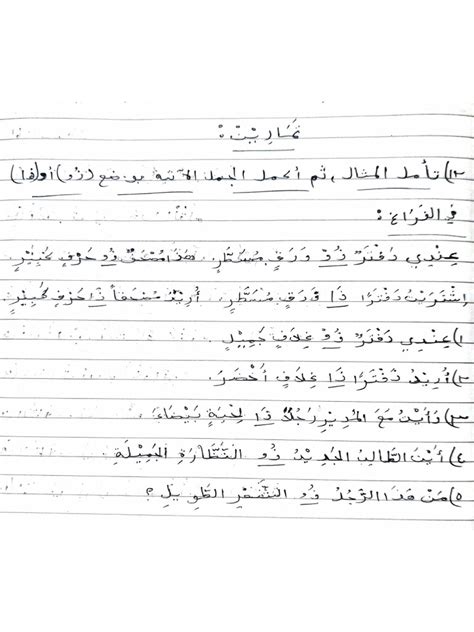 تمارين :
١٢) تأمل المثال ، ثم أكمل الجمل الآتية بوضع (ذو) أو (ذا)
في الفراغ :
عِنْدِي دَفْتَرٌ ذُو وَرَقٍ مُسَطَّرٍ. هَذَا مُصْحَفٌ ذُو حَرْفٍ كَبِيْرٍ
اِشْتَرَيْتُ دَفْتَرًا ذَا وَرَقٍ مُسَطَّرٍ. أُرِيْدُ مُصْحَفاً ذَا حَرْفٍ كَبِيْرٍ
١) عِنْدِي دَفْتَرٌ ذُو غِلَافٍ جَمِيْلٍ
٢) أُرِيْدُ دَفْتَرًا ذَا غِلَافٍ أَخْضَرَ.
٣) رَأَيْتُ مَعَ المُدِيْرِ رَجُلًا ذَا لِحْيَةٍ بَيْضَاءَ.
٤) أَيْنَ الطَّالِبُ الجَدِيْدُ ذُو النَّظَّارَةِ الجَمِيْلَةِ
٥) مَنْ هَذَا الرَّجُلُ ذُو الشَّعْرِ الطَّوِيْلِ ؟